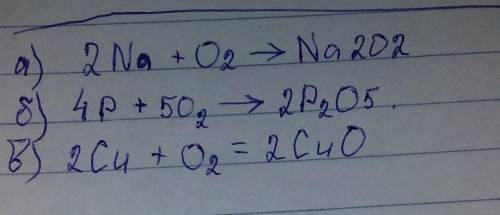 а) 2Na + O₂ → Na2O2
б) 4P + 5O₂ → 2P₂O5.
в) 2Cu + O₂ = 2CuO